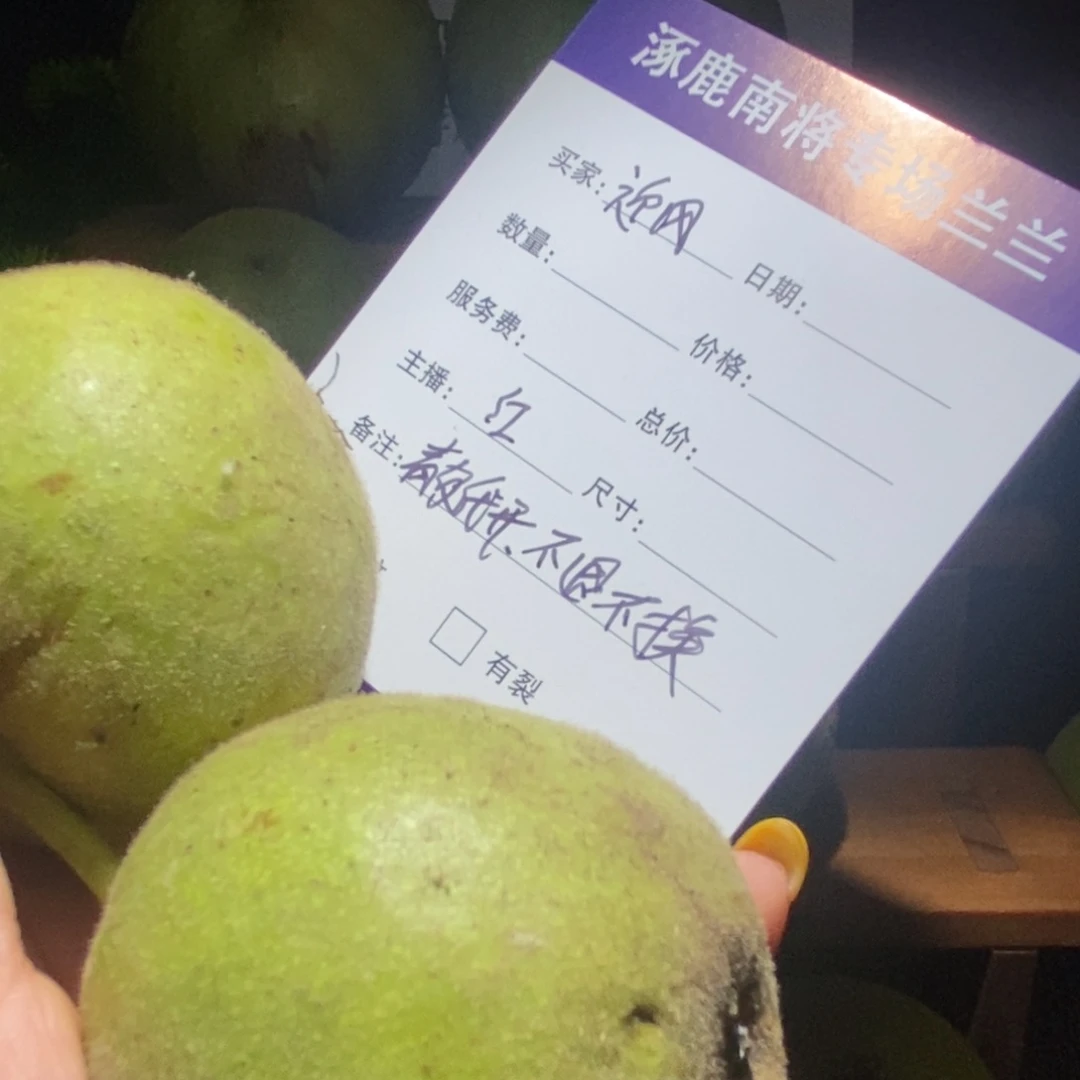 涿鹿南将专场兰兰
买家: 迎网 日期:
数量: 价格:
服务费: 总价:
主播: 红 尺寸:
备注: 不退不换
有裂